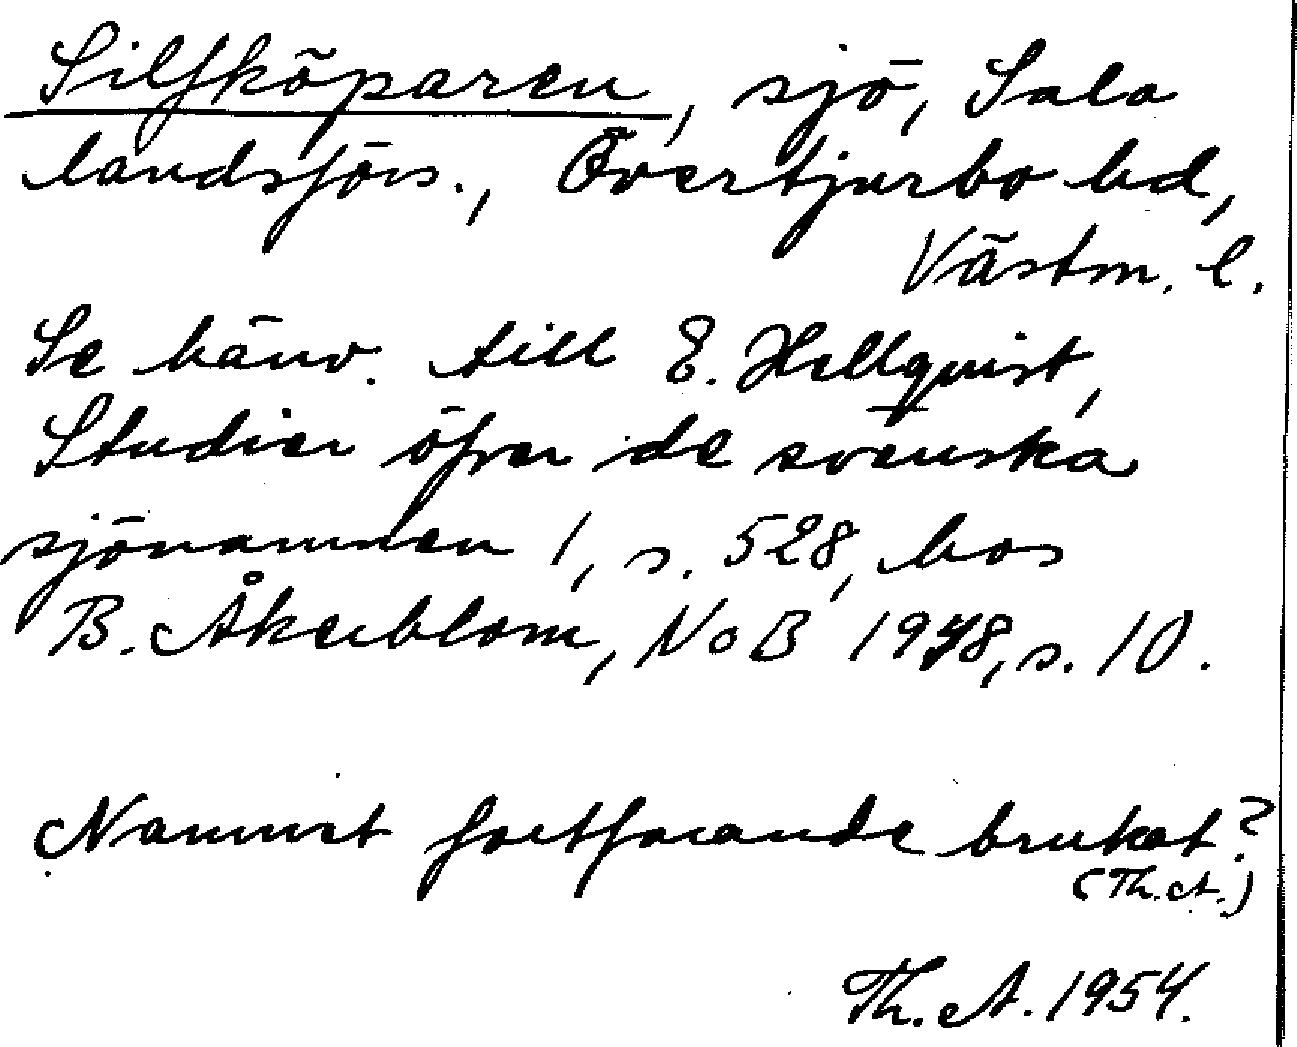 Silfköparen, sjö, Sala
landsförs., Övertjurbo hd,
Västm. l.
Se hänv. till E. Hellquist,
Studier öfver de svenska
sjönamnen 1, s. 528, hos
B. Åkerblom, NoB 1948, s. 10.
Namnet fortfarande brukat?
(Th. A.)
Th. A. 1954.